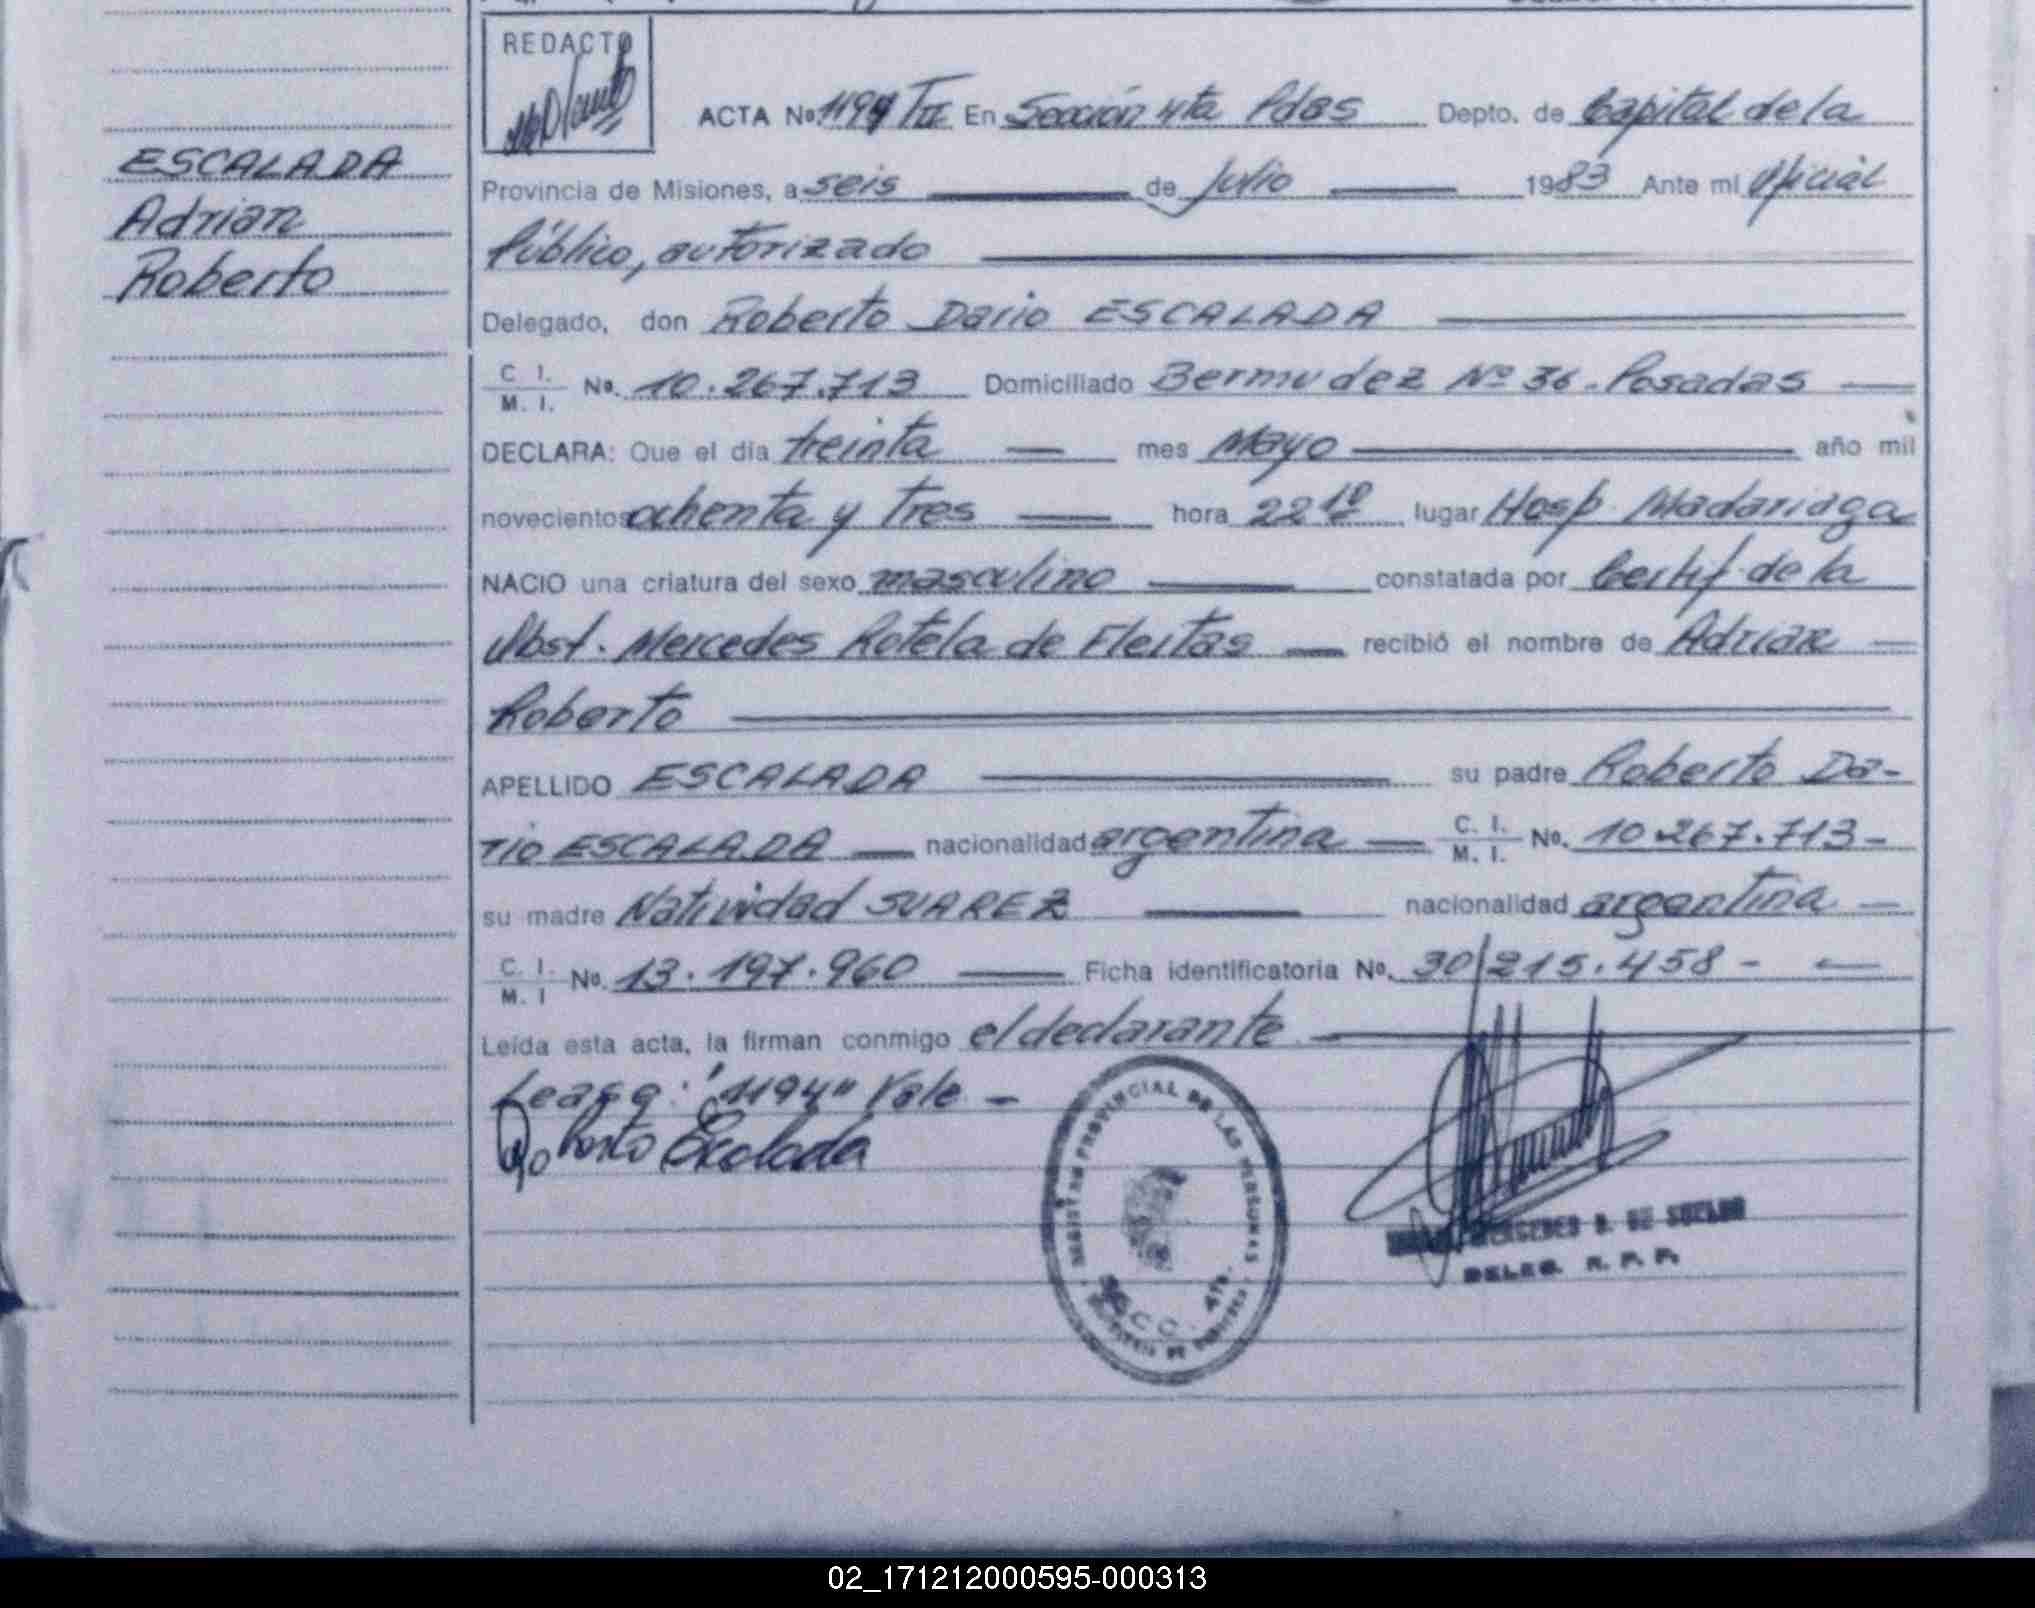 REDACTO
ACTA No. 1194 TIII En Sección 4ta Pdas Depto. de Capital de la
ESCALADA
Adrian
Roberto
Provincia de Misiones, a seis de Julio 1983 Ante mí Oficial
Público, autorizado
Delegado, don Roberto Dario ESCALADA
C. I.
M. I. No. 10.267.713 Domiciliado Bermudez Nº 36. Posadas
DECLARA: Que el día treinta mes Mayo año mil
novecientos ochenta y tres hora 22 10 lugar Hosp. Madariaga
NACIO una criatura del sexo masculino constatada por Certif. de la
Obst. Mercedes Rotela de Fleitas recibió el nombre de Adrian
Roberto
APELLIDO ESCALADA su padre Roberto Da-
rio ESCALADA nacionalidad argentina C. I. M. I. No. 10.267.713-
su madre Natividad SUAREZ nacionalidad argentina
C. I. M. I No. 13.197.960 Ficha identificatoria No. 30/215.458-
Leída esta acta, la firman conmigo el declarante
Lease: "1194" Vale -
Roberto Escalada
REGISTRO PROVINCIAL DE LAS PERSONAS
SECC. 4ta.
DE
DELEG. R. P. P.
02_171212000595-000313